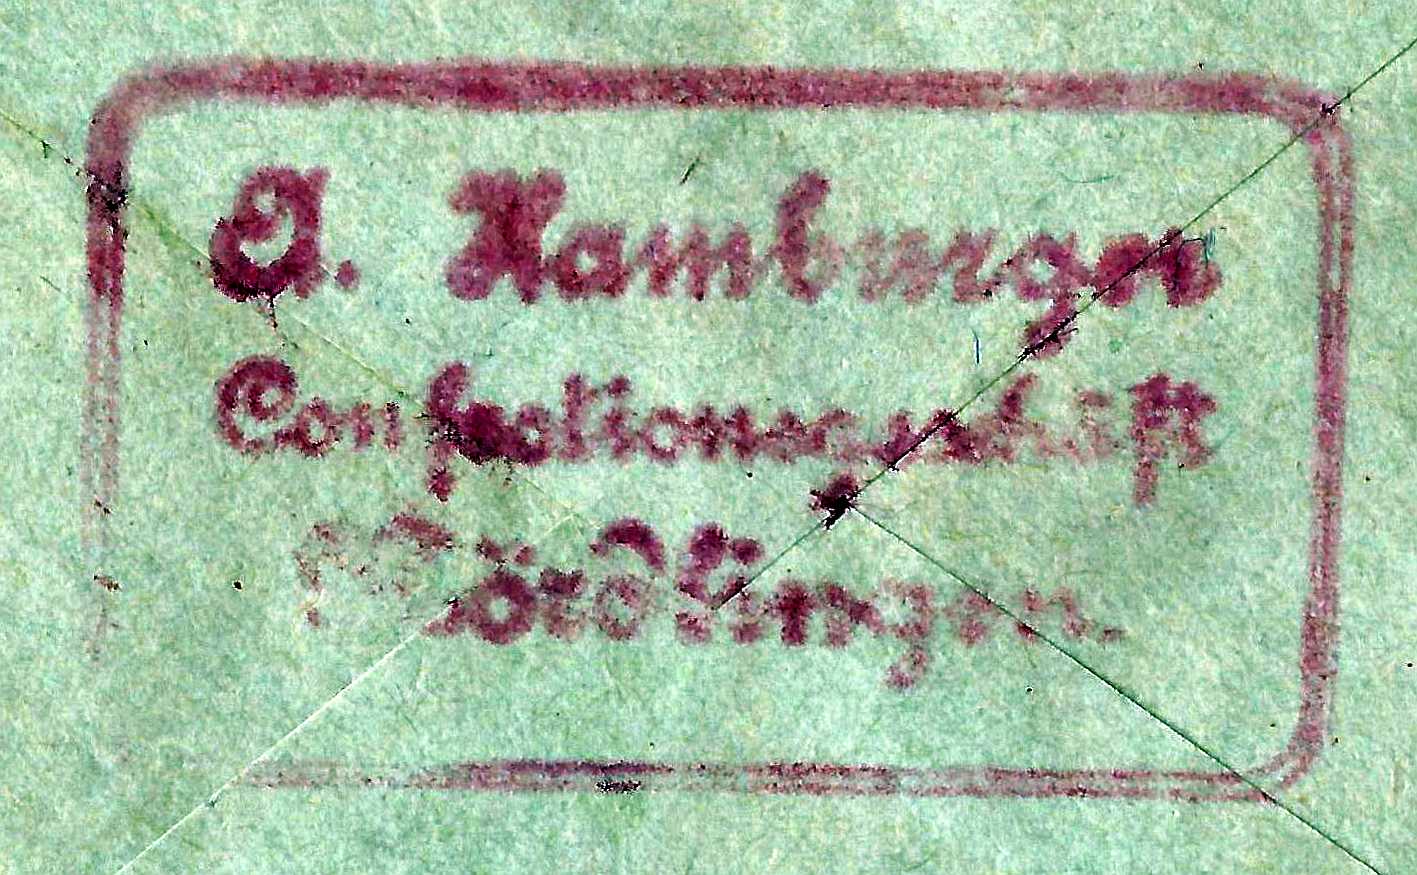 J. Hamburger
Confectionsgeschäft
Nördlingen.